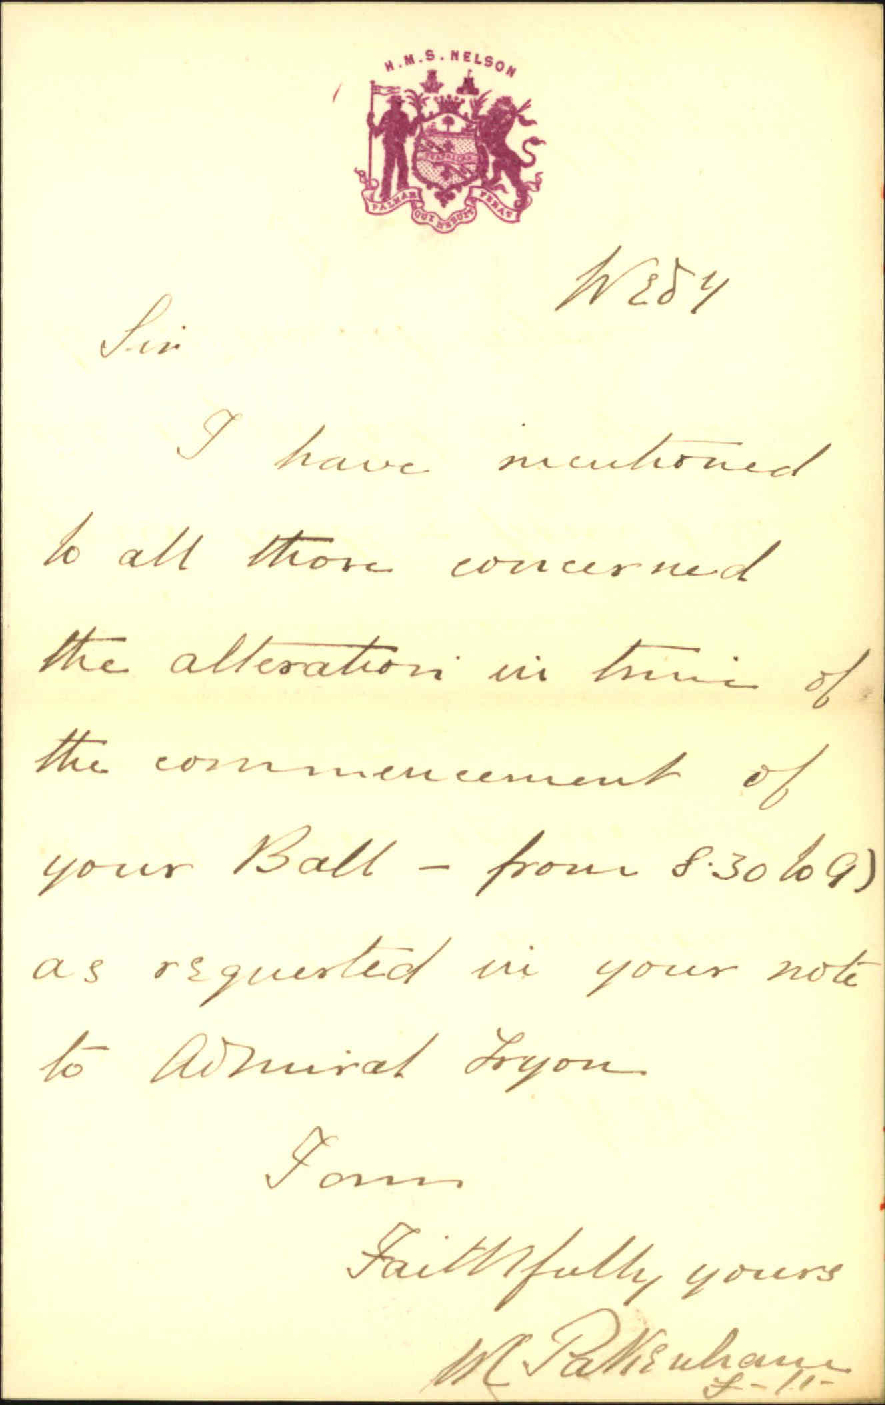 H.M.S. NELSON
PALMAM QUI MERUIT FERAT
Wedy
Sir
I have mentioned
to all those concerned
the alteration in time of
the commencement of
your Ball – from 8.30 to 9)
as requested in your note
to Admiral Tryon
I am
Faithfully yours
W Pakenham